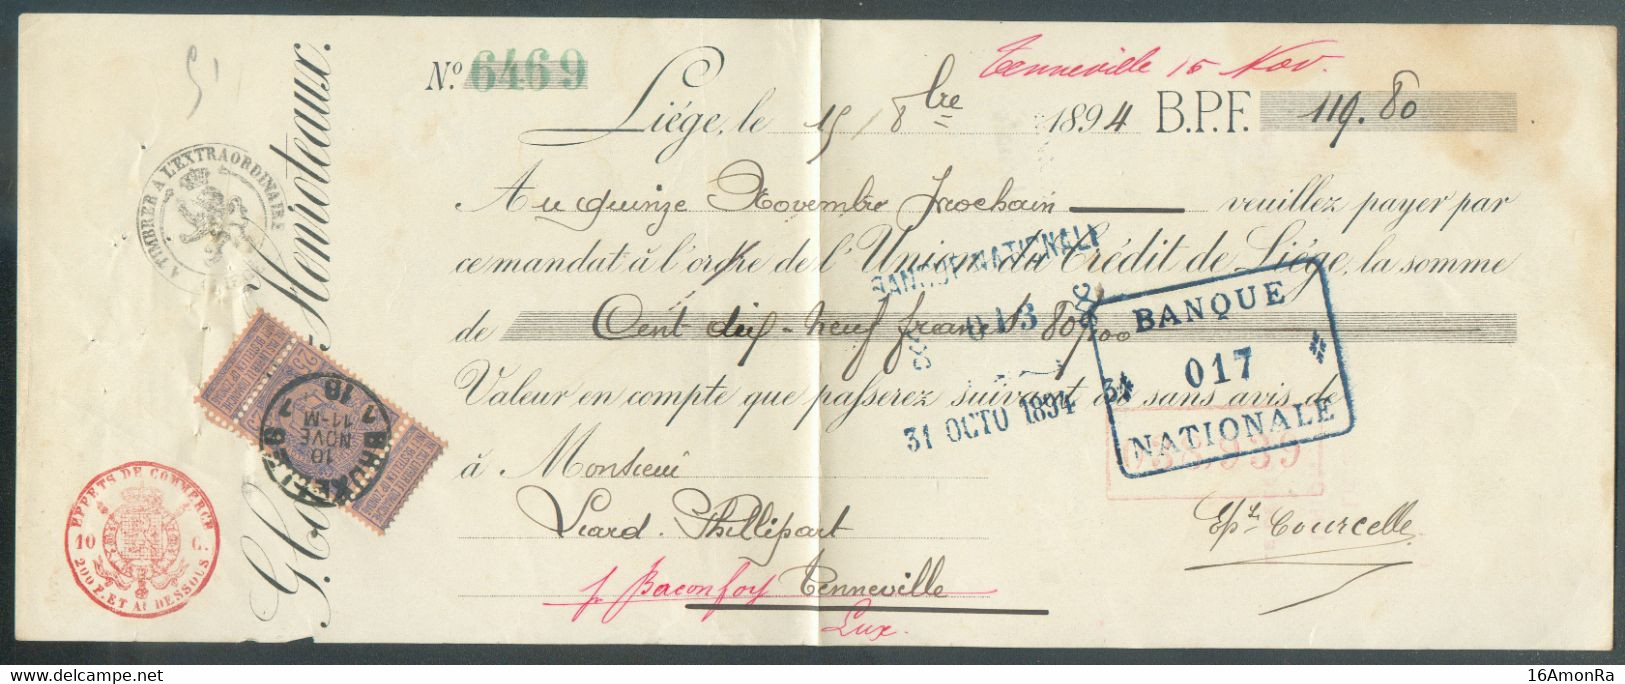 Tenneville 15 Nov.
Nº 6469
Liége, le 15/8bre 1894 B.P.F. 119.80
Au quinze Novembre prochain veuillez payer par
ce mandat à l'ordre de l'Union du Crédit de Liége, la somme
de Cent dix-neuf francs 80/00
Valeur en compte que passerez suivant ou sans avis de
à Monsieur
Liard-Phillipart
p. Baconfoy Tenneville
Lux.
Courcelle
G. Henroteaux.
A TIMBRER A L'EXTRAORDINAIRE
EFFETS DE COMMERCE
10 C.
200 F. ET AU DESSOUS
BANQUE NATIONALE
013
31 OCTO 1894
BANQUE
017
NATIONALE
038,939
10
NOVE
11-M
16AmonRa